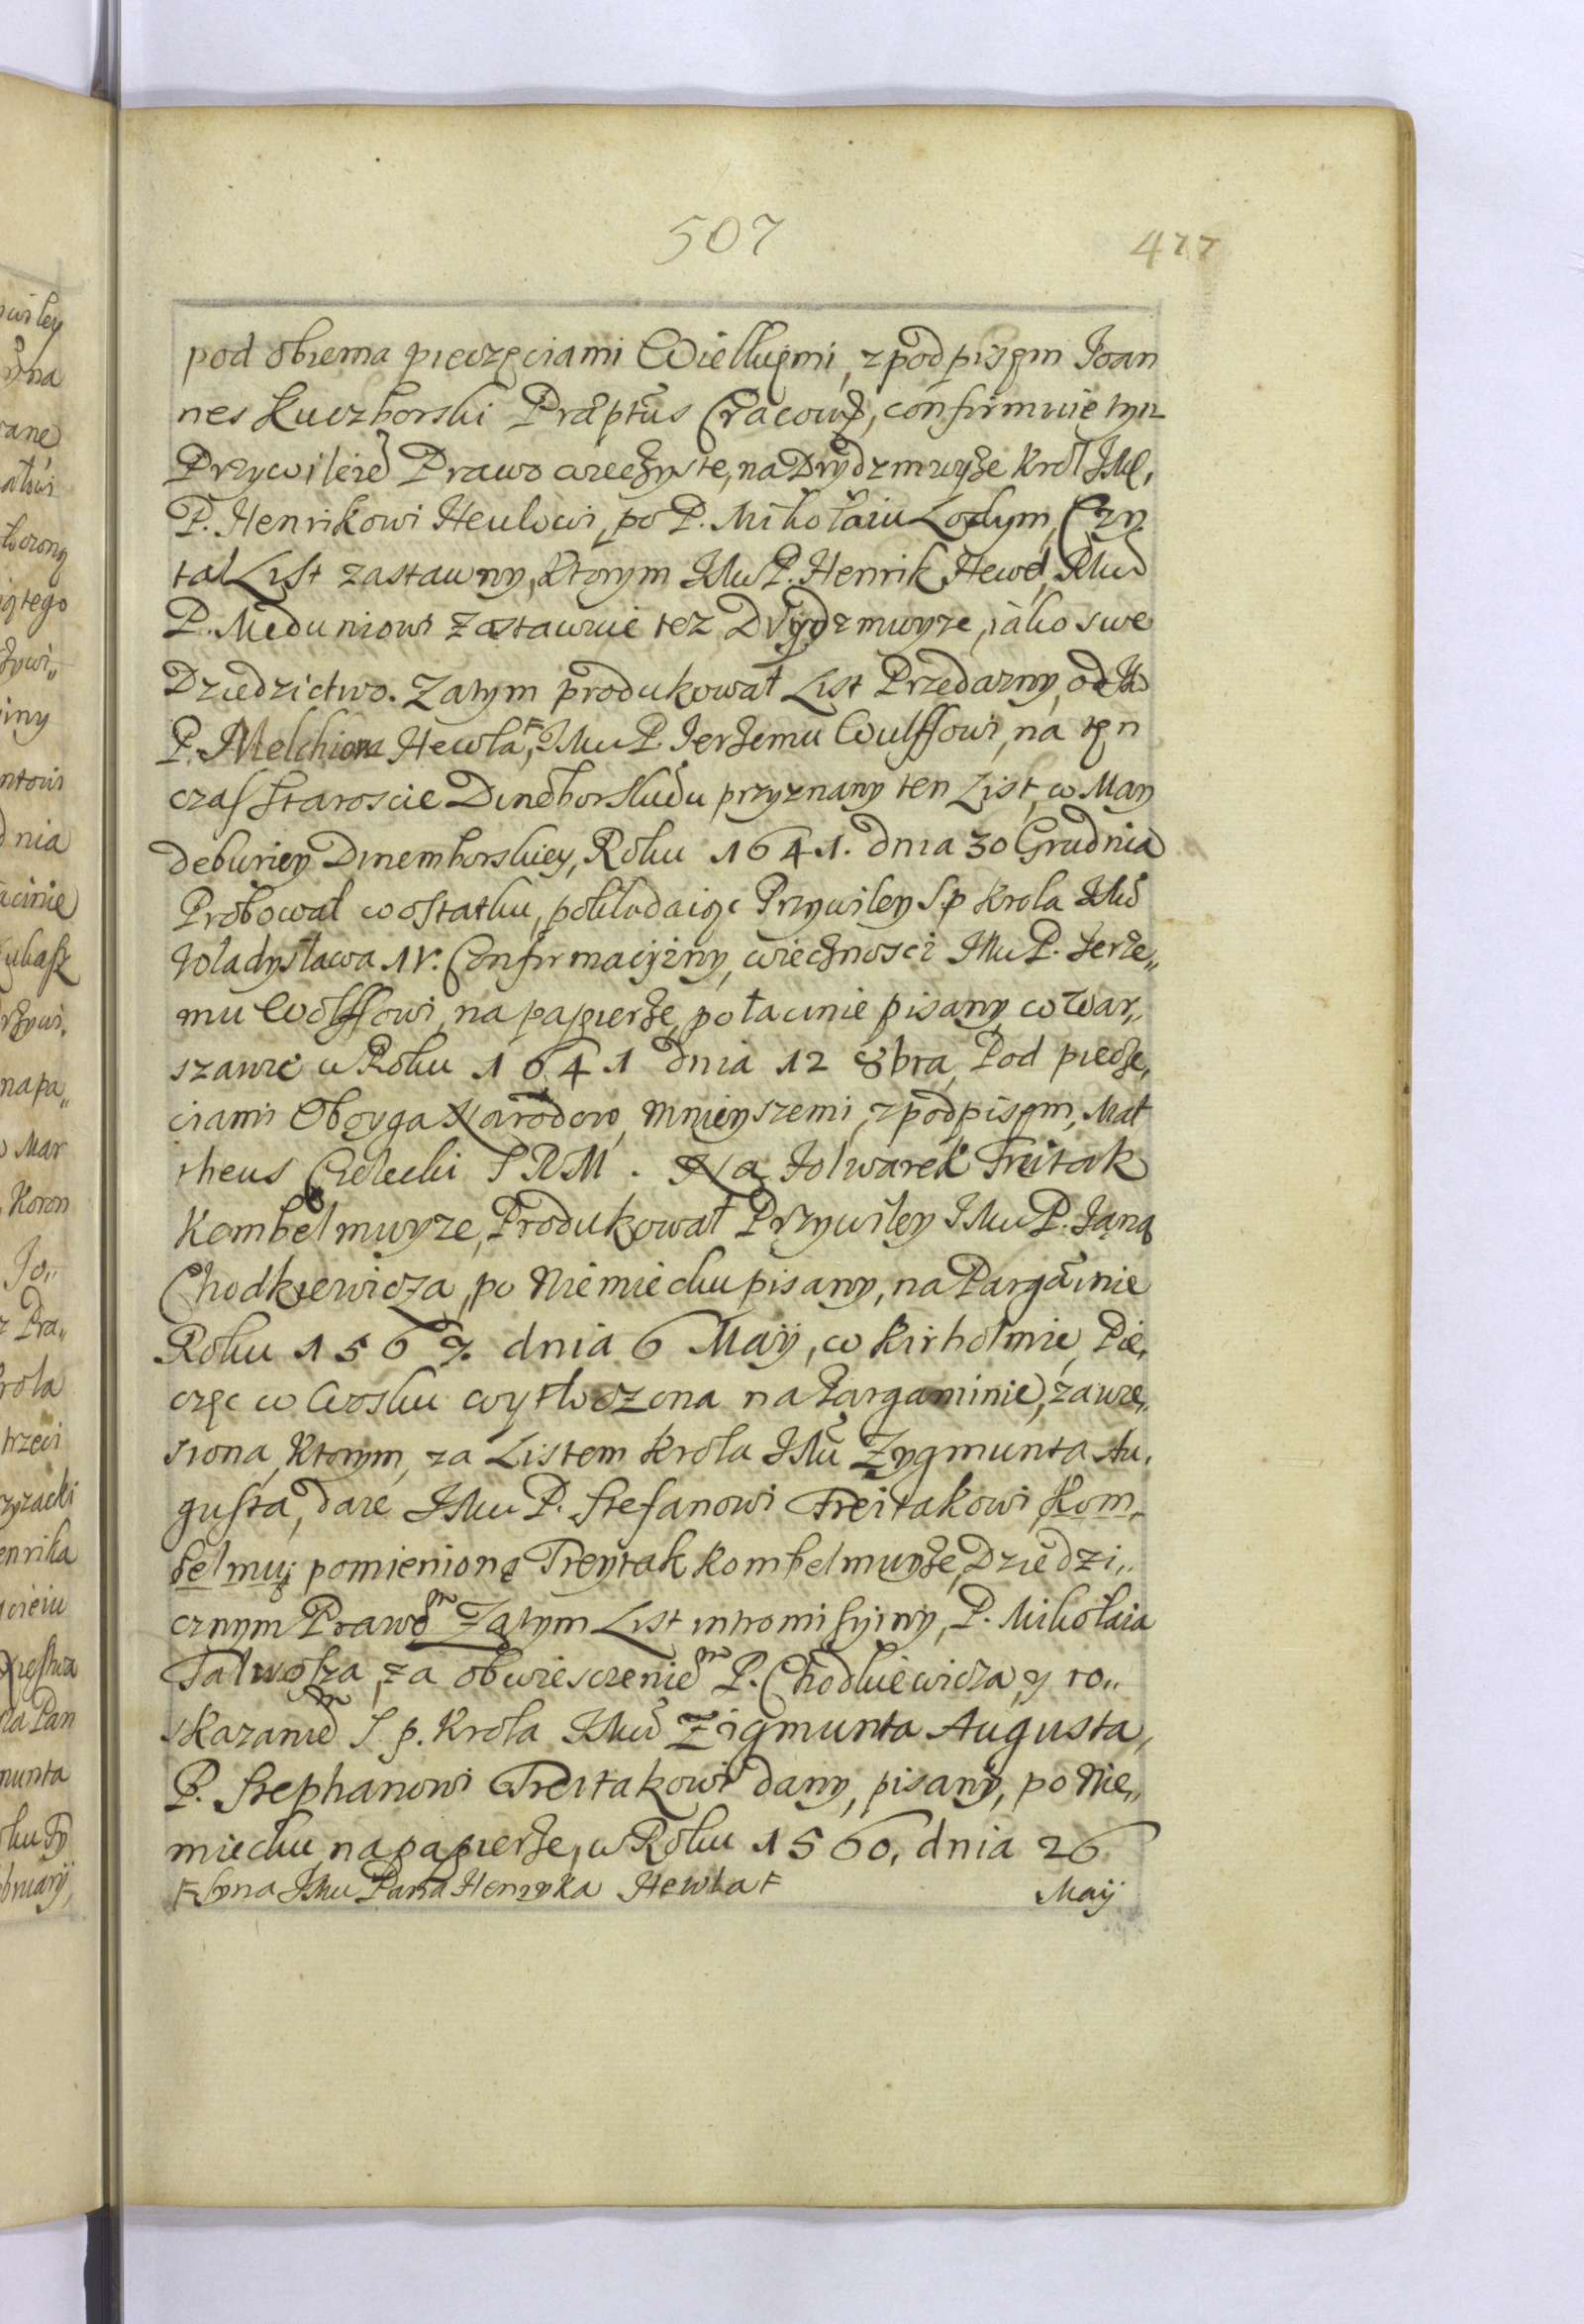 507
477
pod obiema pieczęciami Wielkiemi, z podpisem Joan
nes Kuczborski Præptus Cracow, confirmuie tym
Przywileie Prawo wieczyste, na Drydzmuyże Krol JMę,
P. Henrikowi Heulowi, po P. Mikołaiu Lodym, Czy
tal List zastawny, ktorym JMu P. Henrik Hewel, JMu
P. Meduniowi zastawuie tez Drydzmuyze, iako swe
Dziedzictwo. Zatym produkował List Przedazny, od JM
P. Melchiora Hewla, F JMu P. Jerzemu Wulffowi, na ten
czas Staroscie Dineborskiemu przyznany ten List, w May
deburiey Dinemborskiey, Roku 1641. dnia 30 Grudnia
Probował w ostatku, pokładaiąc Przywiley S.p Krola JMś
Władysława IV. Confirmacyiny, wiecznosci JMu P. Jerze„
mu Wolffowi, na papierze, po łacinie pisany, w War„
szawie w Roku 1641 dnia 12 8bra, Pod pieczę,
ciami Oboyga Narodow, mnieyszemi, z podpisem, Mat
theus Cielecki S R M. Na Folwarek Freitak
Kombelmuyze, Produkował Przywiley JMu P. Jana
Chodkiewicza, po Niemiecku pisany, na Pargaminie
Roku 1567. dnia 6 Maij, w Kirholmie, Pie,
częc w Wosku wytłoczona na Pargaminie, zawie„
siona, Ktorym, za Listem Krola JMu Zygmunta Au,
gusta, daie JMu P. Stefanowi Freitakowi Kom„
belmuj pomienioną Freytak Kombelmuyże, Dziedzi„
cznym Prawem Zatym List intromisyiny, P. Mikołaia
Talwosza, za obwiesczeniem P. Chodkiewicza, y ro„
skazaniem S. p. Krola JMś Zigmunta Augusta,
P. Stephanowi Freitakowi dany, pisany, po Nie„
miecku na papierze, w Roku 1560, dnia 26
F Syna JMu Pana Henryka Hewla F
Maij